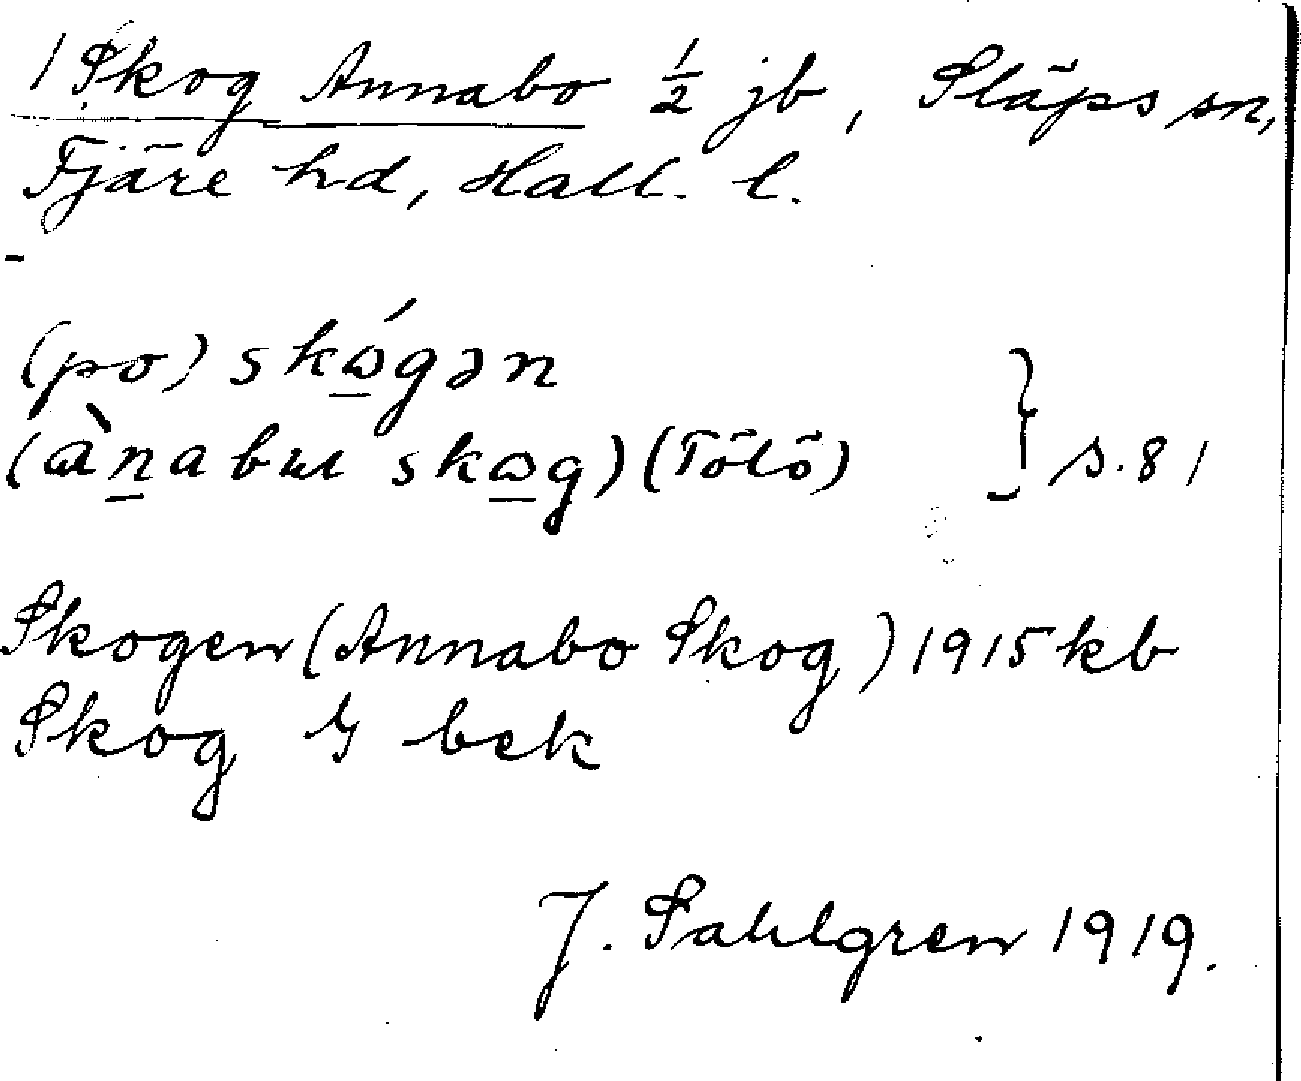 1 Skog Annabo ½ jb, Släps sn,
Fjäre hd, Hall. l.
(po) skɷ̱́gən
(ànabɯ skɷ̱g) (Tölö) } s. 81
Skogen (Annabo Skog) 1915 kb
Skog G bek
J. Sahlgren 1919.